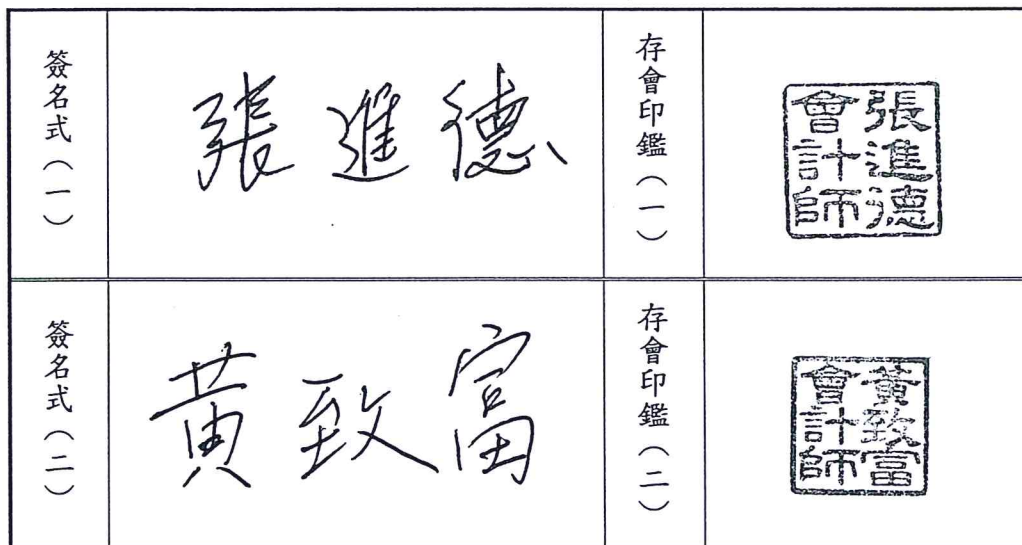 簽名式(一)
張進德
存會印鑑(一)
張進德
會計師
簽名式(二)
黃致富
存會印鑑(二)
黃致富
會計師